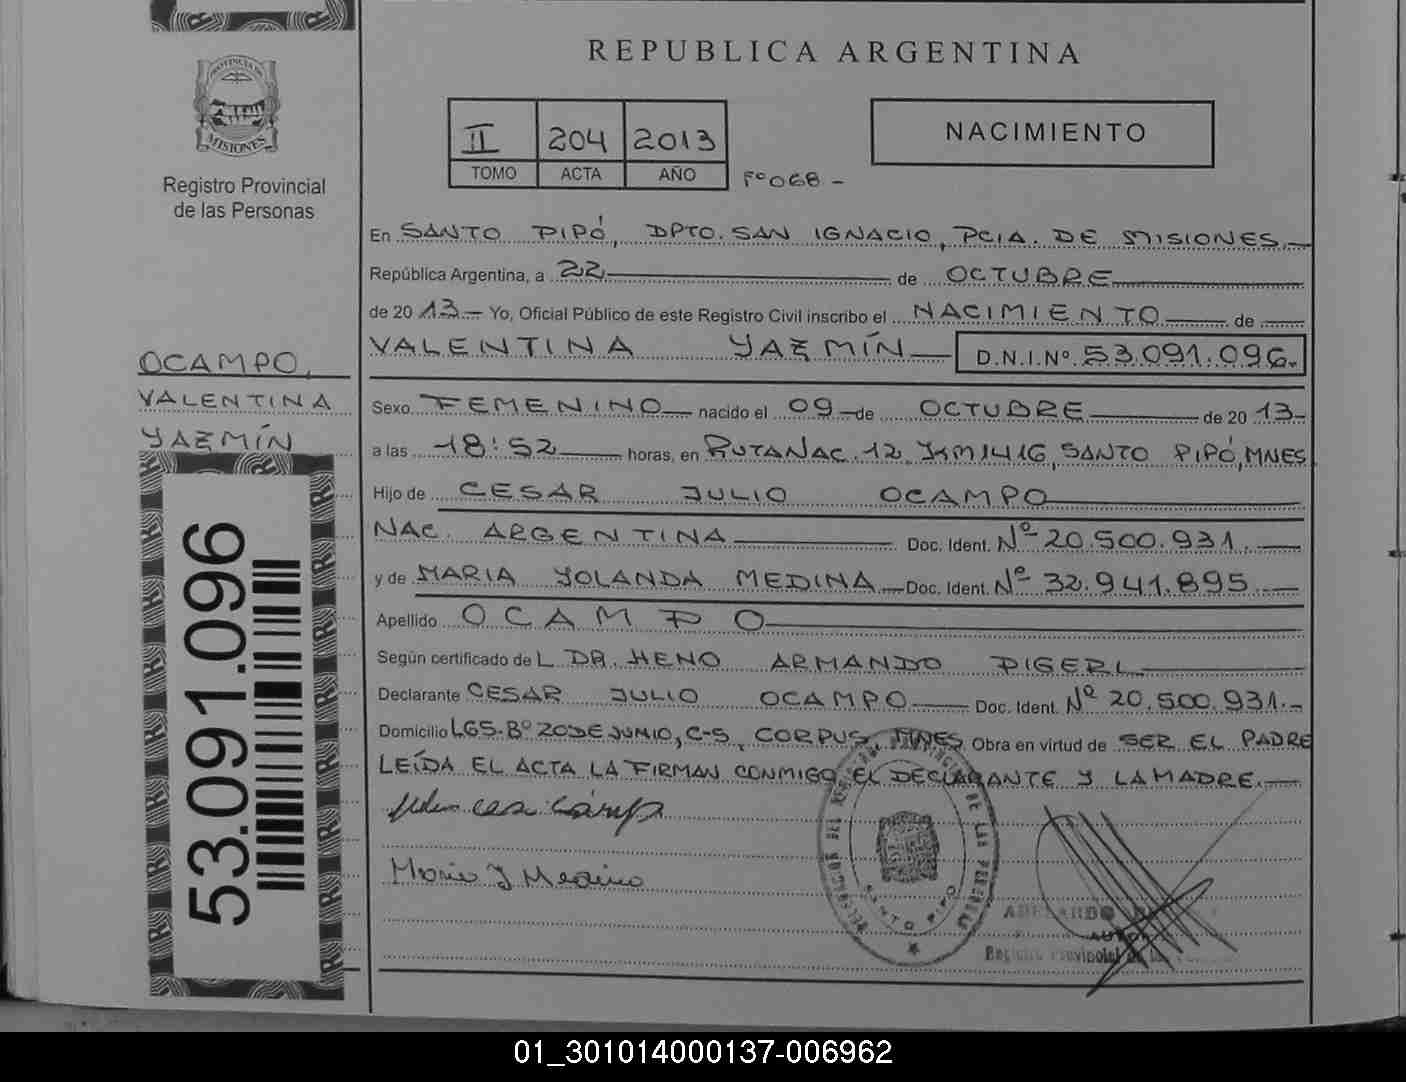 REPUBLICA ARGENTINA
PROVINCIA DE
MISIONES
Registro Provincial
de las Personas
II 204 2013
TOMO ACTA AÑO
Fº 068 -
NACIMIENTO
En SANTO PIPÓ, DPTO. SAN IGNACIO, PCIA. DE MISIONES.
República Argentina, a 22 de OCTUBRE
de 20 13.- Yo, Oficial Público de este Registro Civil inscribo el NACIMIENTO de
VALENTINA YAZMÍN D.N.I.Nº 53.091.096.
OCAMPO,
VALENTINA
YAZMÍN
Sexo FEMENINO nacido el 09 de OCTUBRE de 20 13-
a las 18:52 horas, en RUTA NAC. 12 KM 1416, SANTO PIPÓ, MNES
Hijo de CESAR JULIO OCAMPO
NAC. ARGENTINA Doc. Ident. Nº 20.500.931.
y de MARIA YOLANDA MEDINA Doc. Ident. Nº 32.941.895
Apellido OCAMPO
Según certificado de L DR. HENO ARMANDO PIGERL
Declarante CESAR JULIO OCAMPO Doc. Ident. Nº 20.500.931.-
Domicilio LG5-Bº 20 DE JUNIO, C-5, CORPUS, MNES Obra en virtud de SER EL PADRE
LEÍDA EL ACTA LA FIRMAN CONMIGO EL DECLARANTE Y LA MADRE.
Maria Y Medina
SANTO PIPO
Registro Provincial de las
53.091.096
01_301014000137-006962